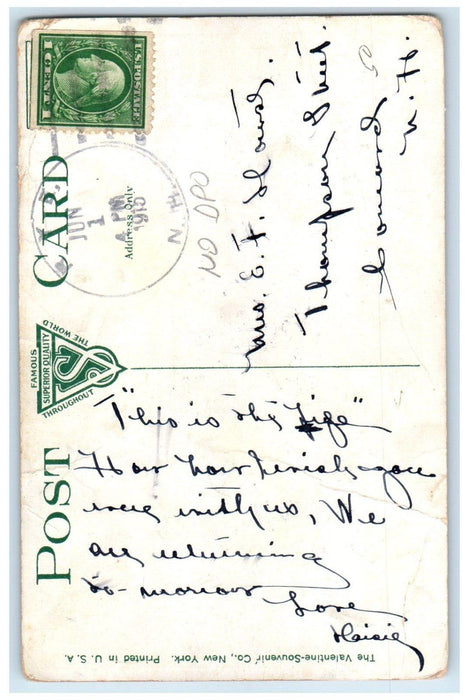 POST CARD
FAMOUS
THROUGHOUT
THE WORLD
SUPERIOR QUALITY
VSC
"This is the Life"
How how I wish you
were with us, We
are returning
to-morrow
Love
Maisie
Address Only
JUN
1
4 PM
1915
N.H.
NO DPO
U.S. POSTAGE
1 CENT 1
Mrs. E. F.
Thompson Street.
Concord
N. H.
The Valentine-Souvenir Co., New York. Printed in U. S. A.